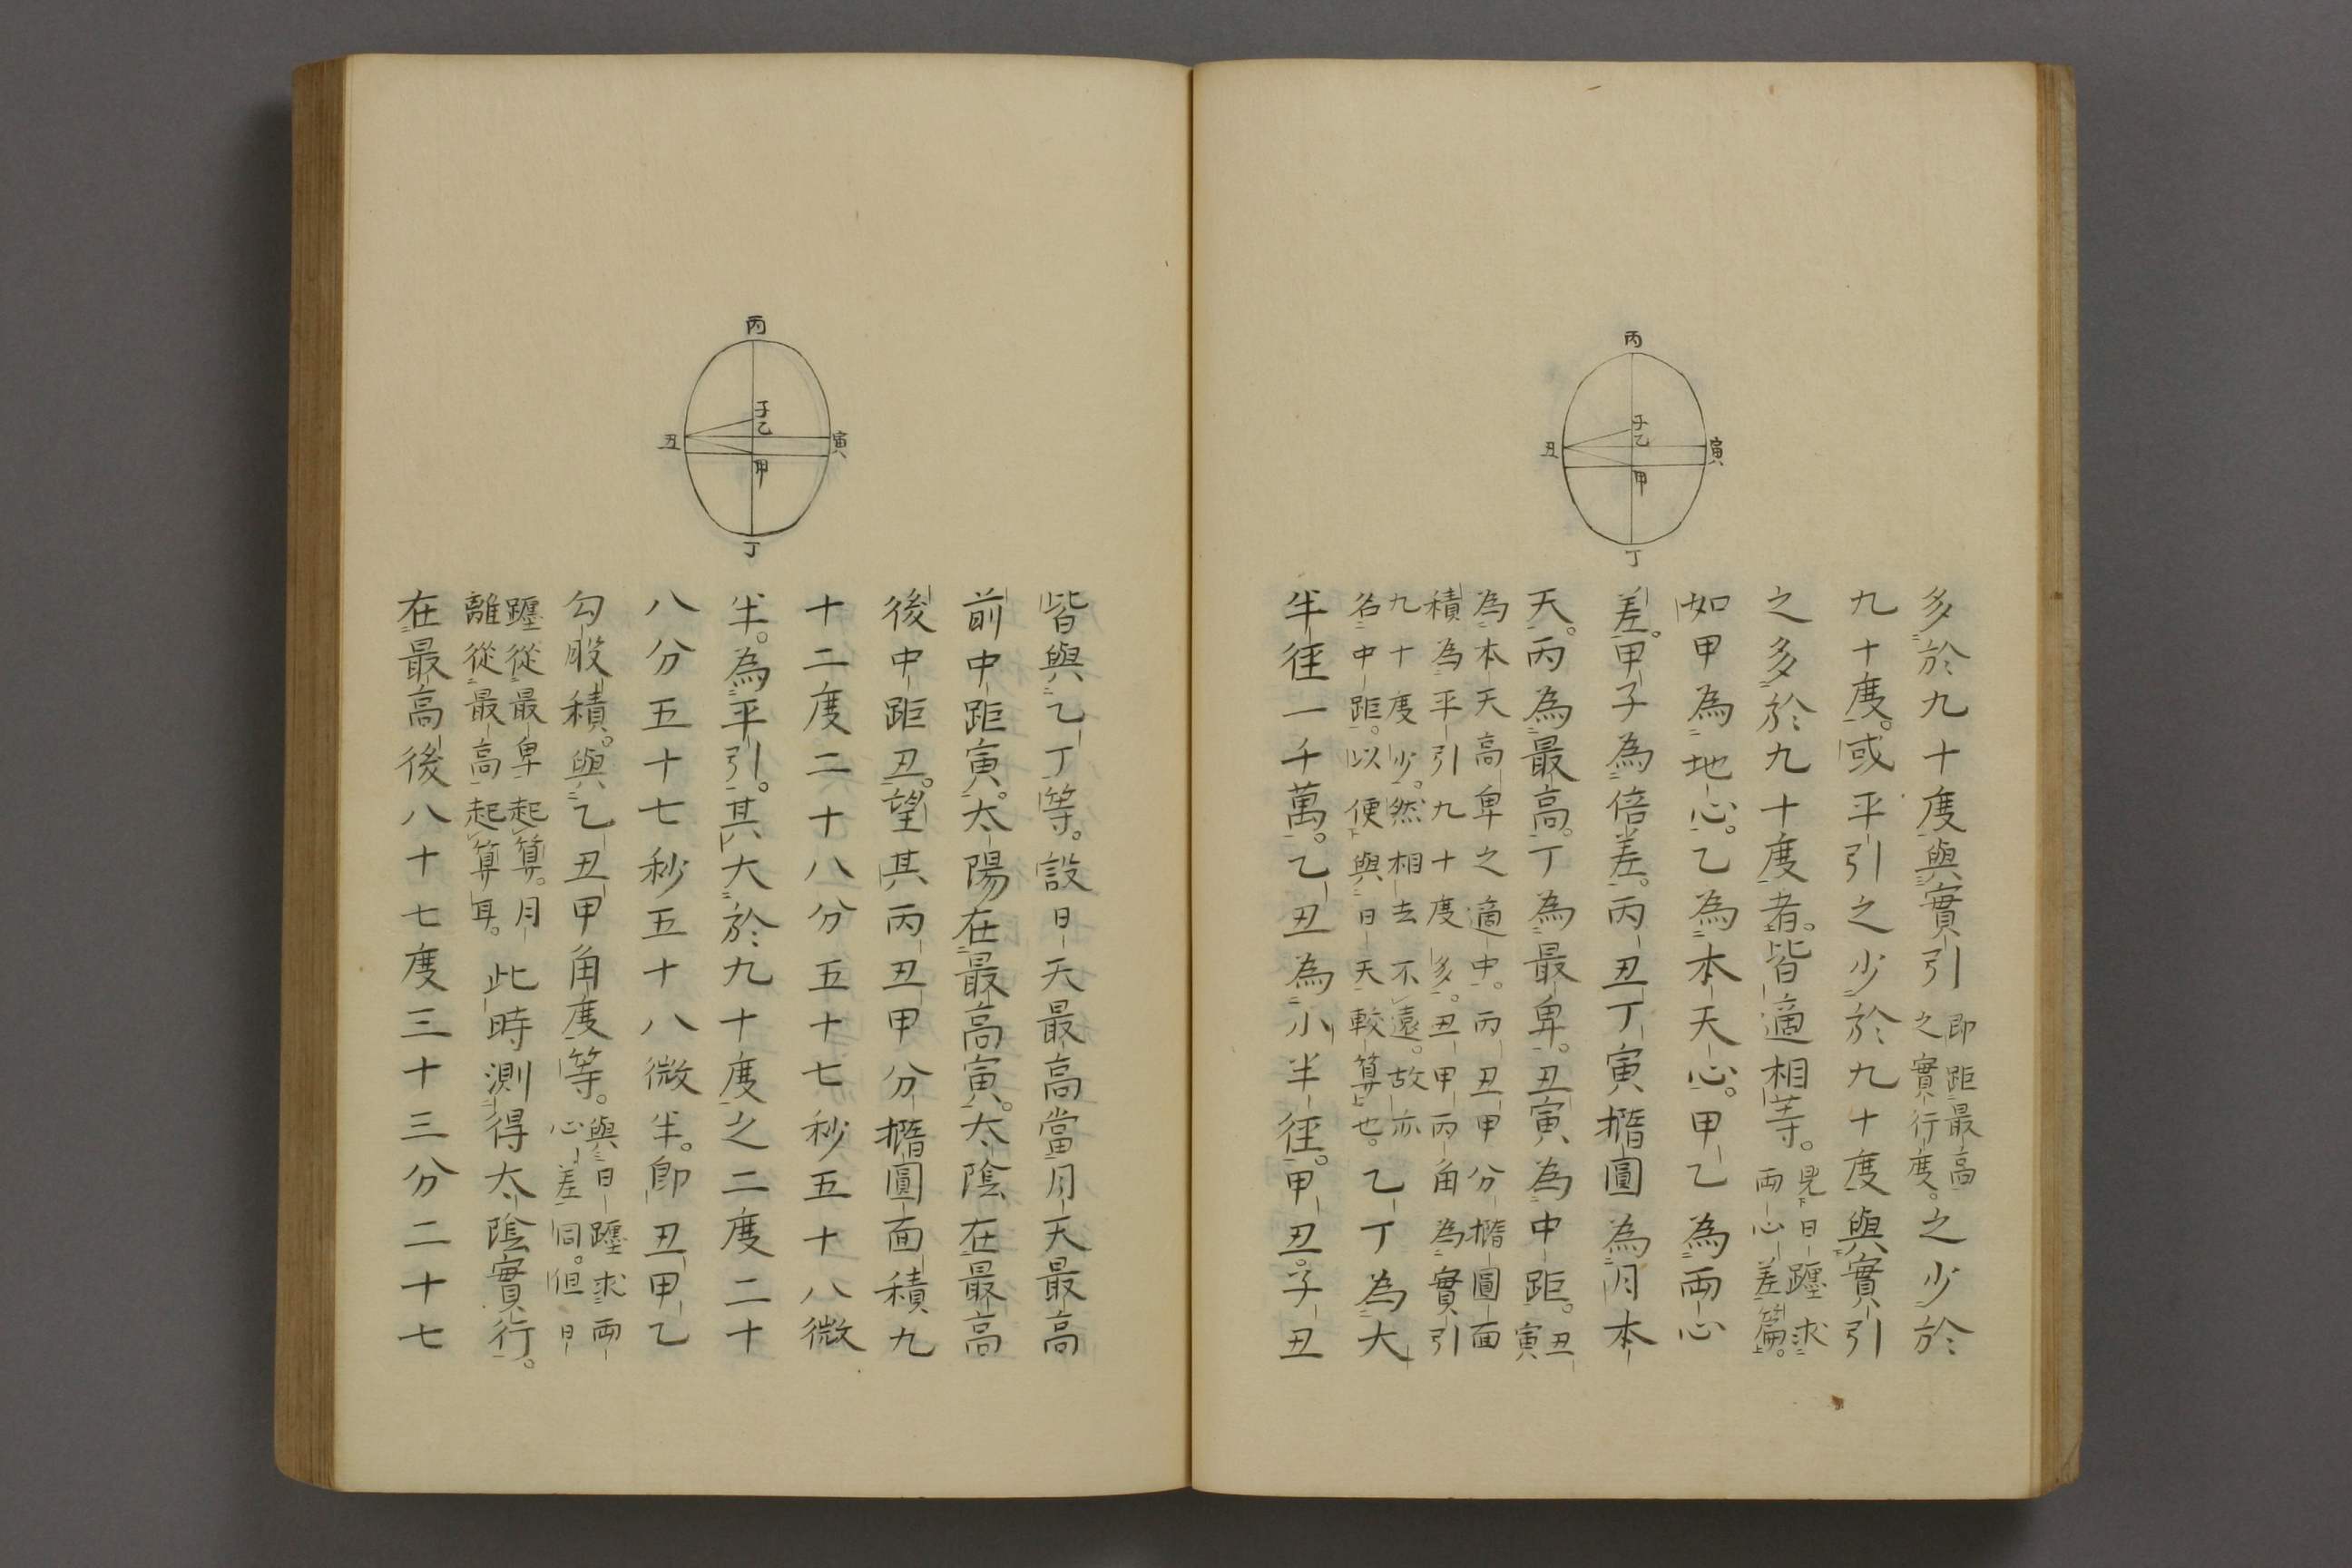 丙
子
乙
丑
寅
甲
丁
多於九十度與實引即距最高之實行度。之少於
九十度。或平引之少於九十度與實引
之多於九十度者。皆適相等。見日躔求兩心差篇。
如甲為地心。乙為本天心。甲乙為兩心
差。甲子為倍差。丙丑丁寅橢圓為月本
天。丙為最高。丁為最卑。丑寅為中距。丑寅
為本天高卑之適中。丙丑甲分橢圓面
積為平引九十度多。丑甲丙角為實引
九十度少。然相去不遠。故亦
名中距。以便與日天較算也。乙丁為大
半徑一千萬。乙丑為小半徑。甲丑。子丑
丙
子
乙
丑
寅
甲
丁
皆與乙丁等。設日天最高當月天最高
前中距寅。太陽在最高寅。太陰在最高
後中距丑。望其丙丑甲分橢圓面積九
十二度二十八分五十七秒五十八微
半。為平引。其大於九十度之二度二十
八分五十七秒五十八微半。即丑甲乙
勾股積。與乙丑甲角度等。與日躔求兩心差同。但日
躔從最卑起算。月離從最高起算耳。此時測得太陰實行。
在最高後八十七度三十三分二十七